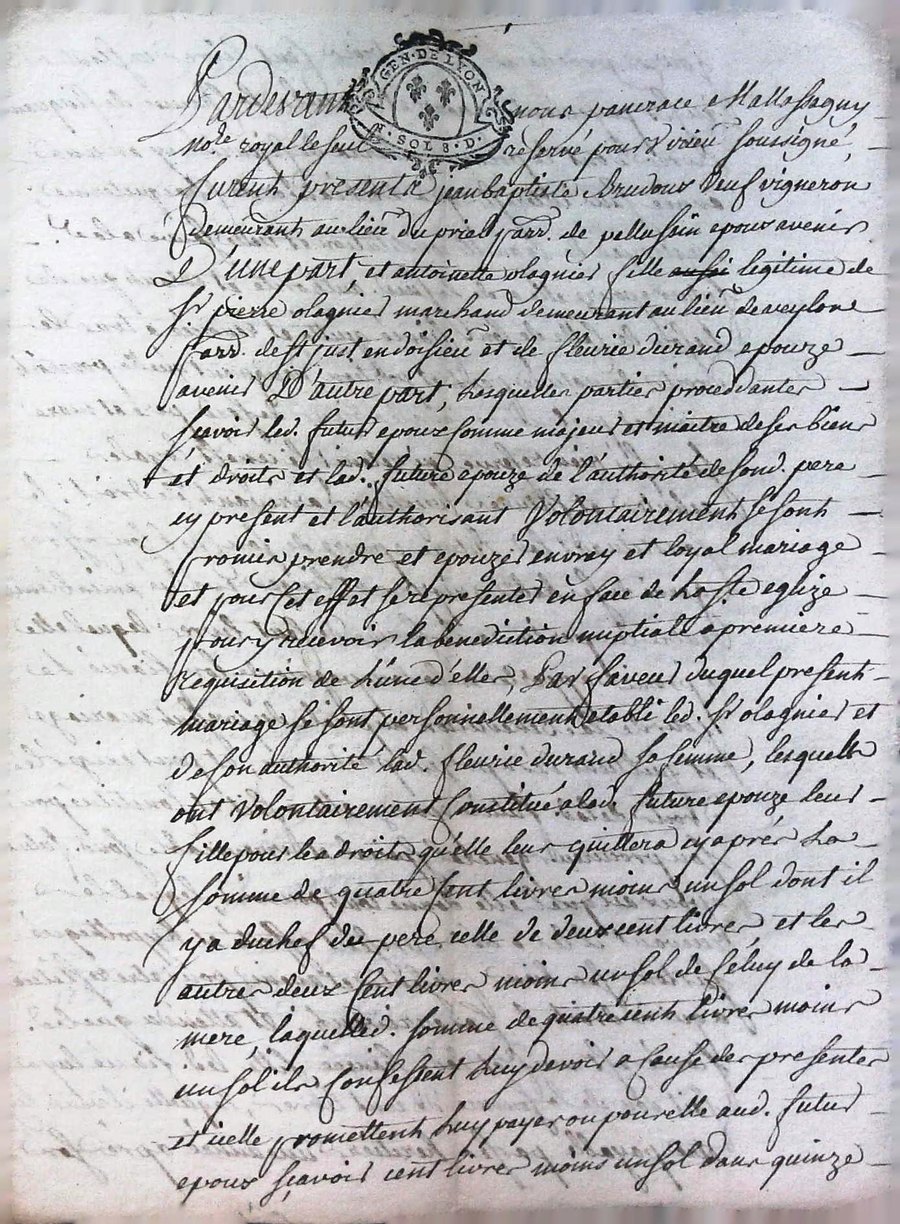 GEN. DE LYON
SOLS. D.
Pardevant nous pancrace Mallassagny
no.re royal le seul réservé pour Virieu soussigné,
furent présents jean baptiste Brudoux veuf vigneron
demeurant au lieu du priel parr. de pellussin epoux avenir
D'une part, et antoinette olagnier fille aussi legitime de
Sr. pierre olagnier marchand demeurant au lieu de veylone
parr. de St just en doisieu et de fleurie durand epouze
avenir D'autre part, Lesquelles parties procedantes
sçavoir led. futur epoux comme majeur et maitre de ses biens
et droits et lad. future epouze de l'authorité de sond. pere
cy present et l'authorisant Volontairement se sont
promis prendre et epouzer en vray et loyal mariage
et pour cet effet se representer en face de La Ste eglize
pour y recevoir la benediction nuptiale a premiere
requisition de L'une d'elles, Par faveur duquel present
mariage se sont personnellement etabli led. Sr olagnier et
de son authorité lad. fleurie durand sa femme, lesquels
ont Volontairement Constitué a lad. future epouze leur
fille pour les droits qu'elle leur quittera cy après La
somme de quatre cent livres moins un sol dont il
y a du chef du pere celle de deux cent livres et les
autres deux cent livres moins un sol de Celuy de la
mere, laquelled. somme de quatre cent livres moins
un sol ils Confessent Luy devoir a Cause des presentes
et icelle promettent Luy payer ou pour elle aud. futur
epoux sçavoir cent livres moins un sol dans quinze